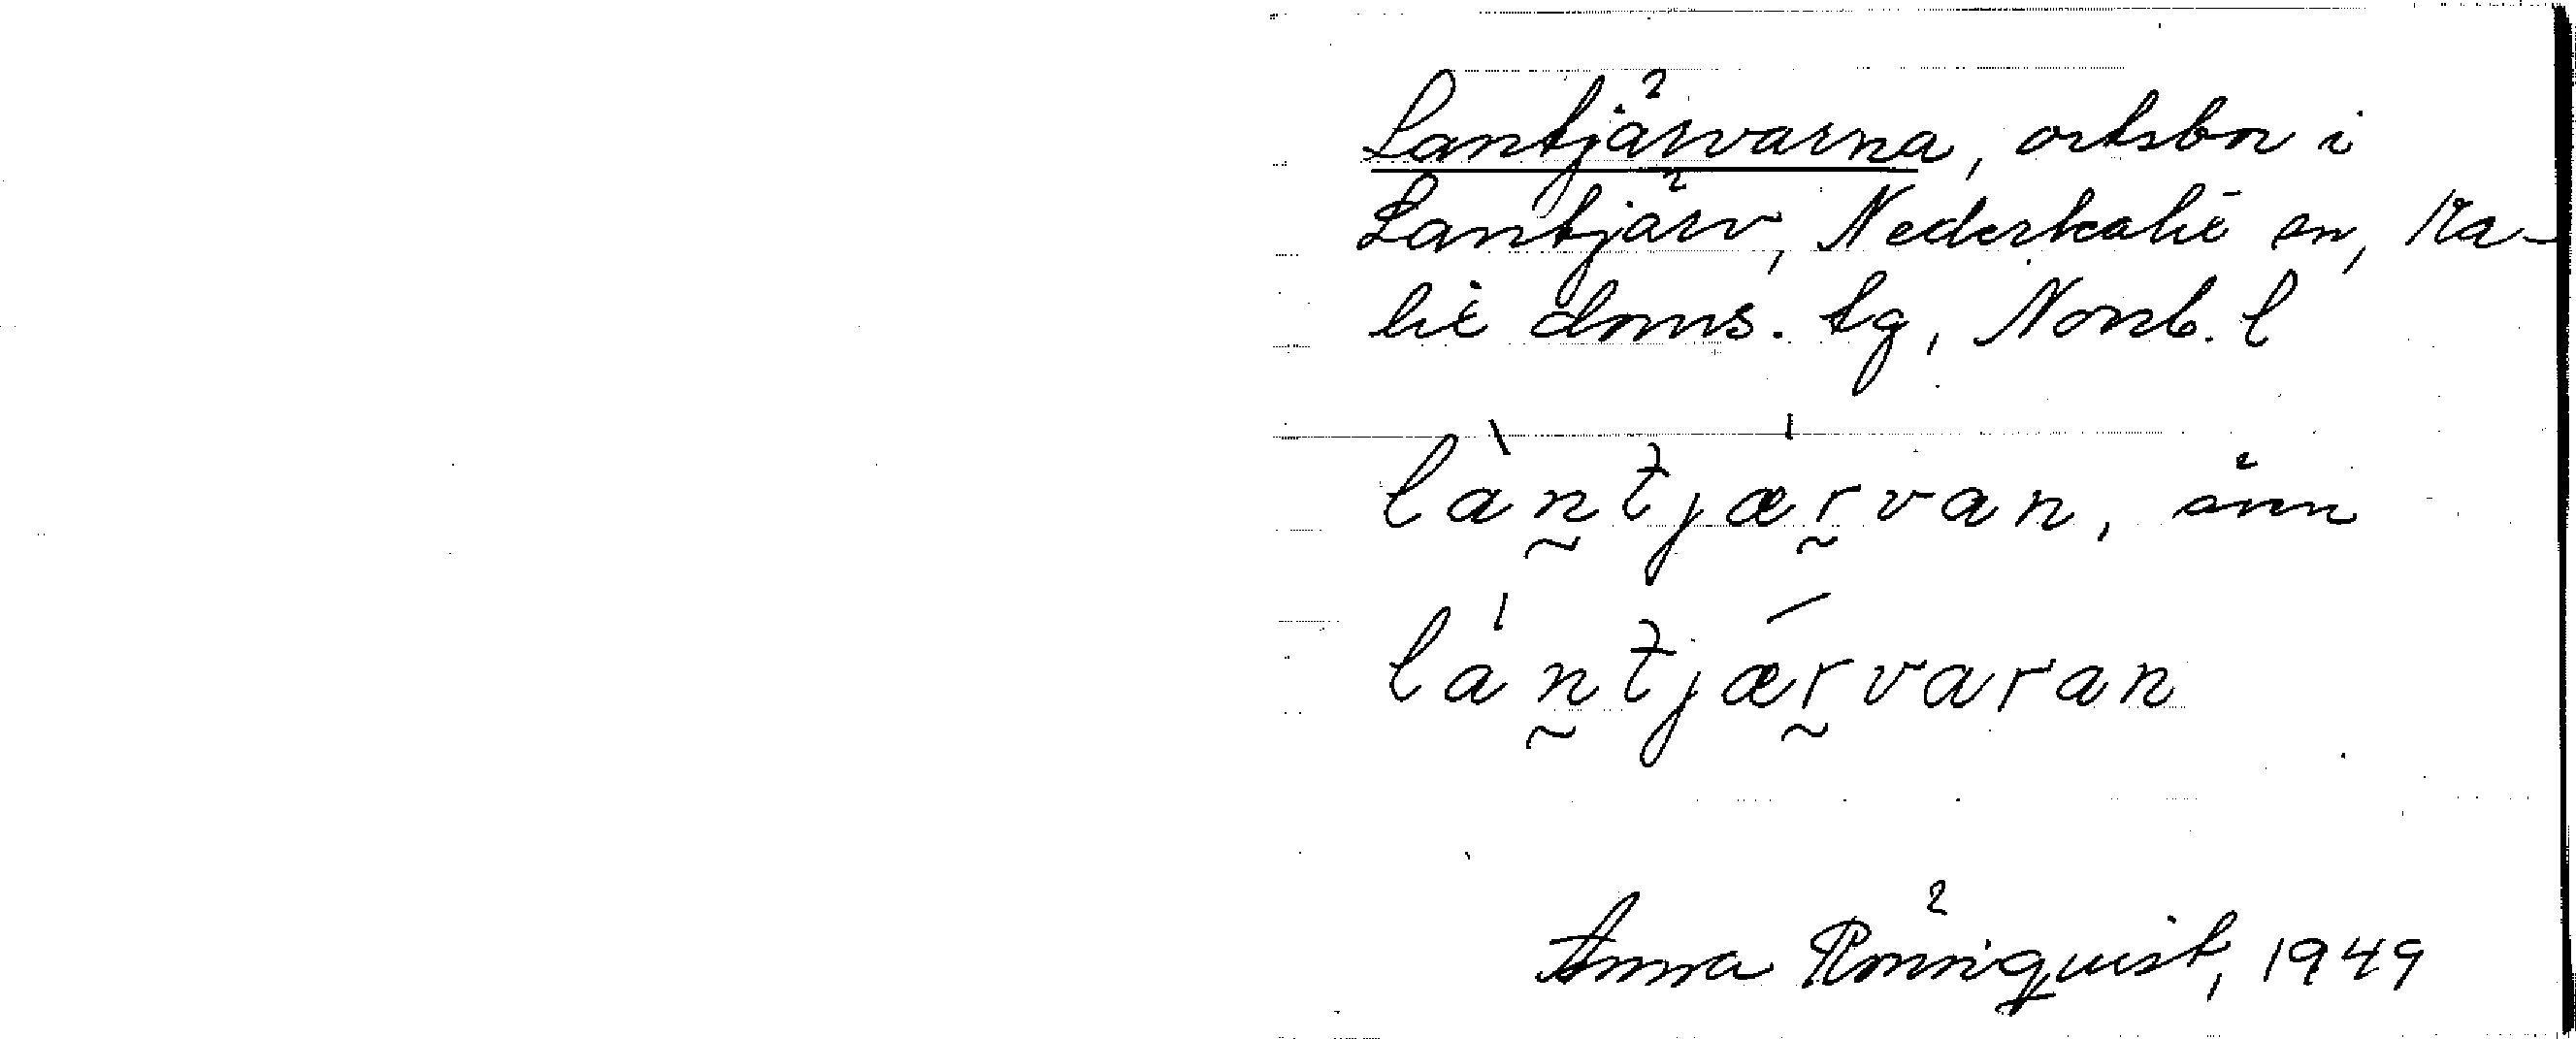 Lantjärvarna, ortsbor i
Lantjärv, Nederkalix sn, Ka-
lix doms. tg, Norrb. l
làntjærvan, även
lántjǽrvaran
Anna Rönnquist, 1949